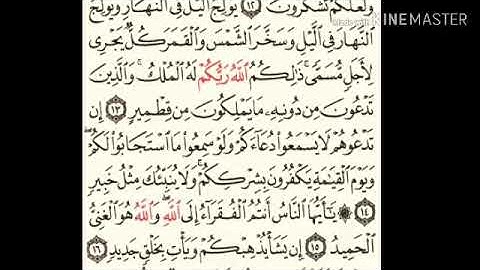 وَلَعَلَّكُمْ تَشْكُرُونَ ﴿١٢﴾ يُولِجُ ٱلَّيْلَ فِي ٱلنَّهَارِ وَيُولِجُ
ٱلنَّهَارَ فِي ٱلَّيْلِ وَسَخَّرَ ٱلشَّمْسَ وَٱلْقَمَرَ كُلٌّ يَجْرِي
لِأَجَلٍ مُّسَمًّى ۚ ذَٰلِكُمُ ٱللَّهُ رَبُّكُمْ لَهُ ٱلْمُلْكُ ۚ وَٱلَّذِينَ
تَدْعُونَ مِن دُونِهِۦ مَا يَمْلِكُونَ مِن قِطْمِيرٍ ﴿١٣﴾ إِن
تَدْعُوهُمْ لَا يَسْمَعُوا۟ دُعَآءَكُمْ وَلَوْ سَمِعُوا۟ مَا ٱسْتَجَابُوا۟ لَكُمْ ۖ
وَيَوْمَ ٱلْقِيَٰمَةِ يَكْفُرُونَ بِشِرْكِكُمْ ۚ وَلَا يُنَبِّئُكَ مِثْلُ خَبِيرٍ
﴿١٤﴾ ۞ يَٰٓأَيُّهَا ٱلنَّاسُ أَنتُمُ ٱلْفُقَرَآءُ إِلَى ٱللَّهِ ۖ وَٱللَّهُ هُوَ ٱلْغَنِيُّ
ٱلْحَمِيدُ ﴿١٥﴾ إِن يَشَأْ يُذْهِبْكُمْ وَيَأْتِ بِخَلْقٍ جَدِيدٍ ﴿١٦﴾
KINEMASTER